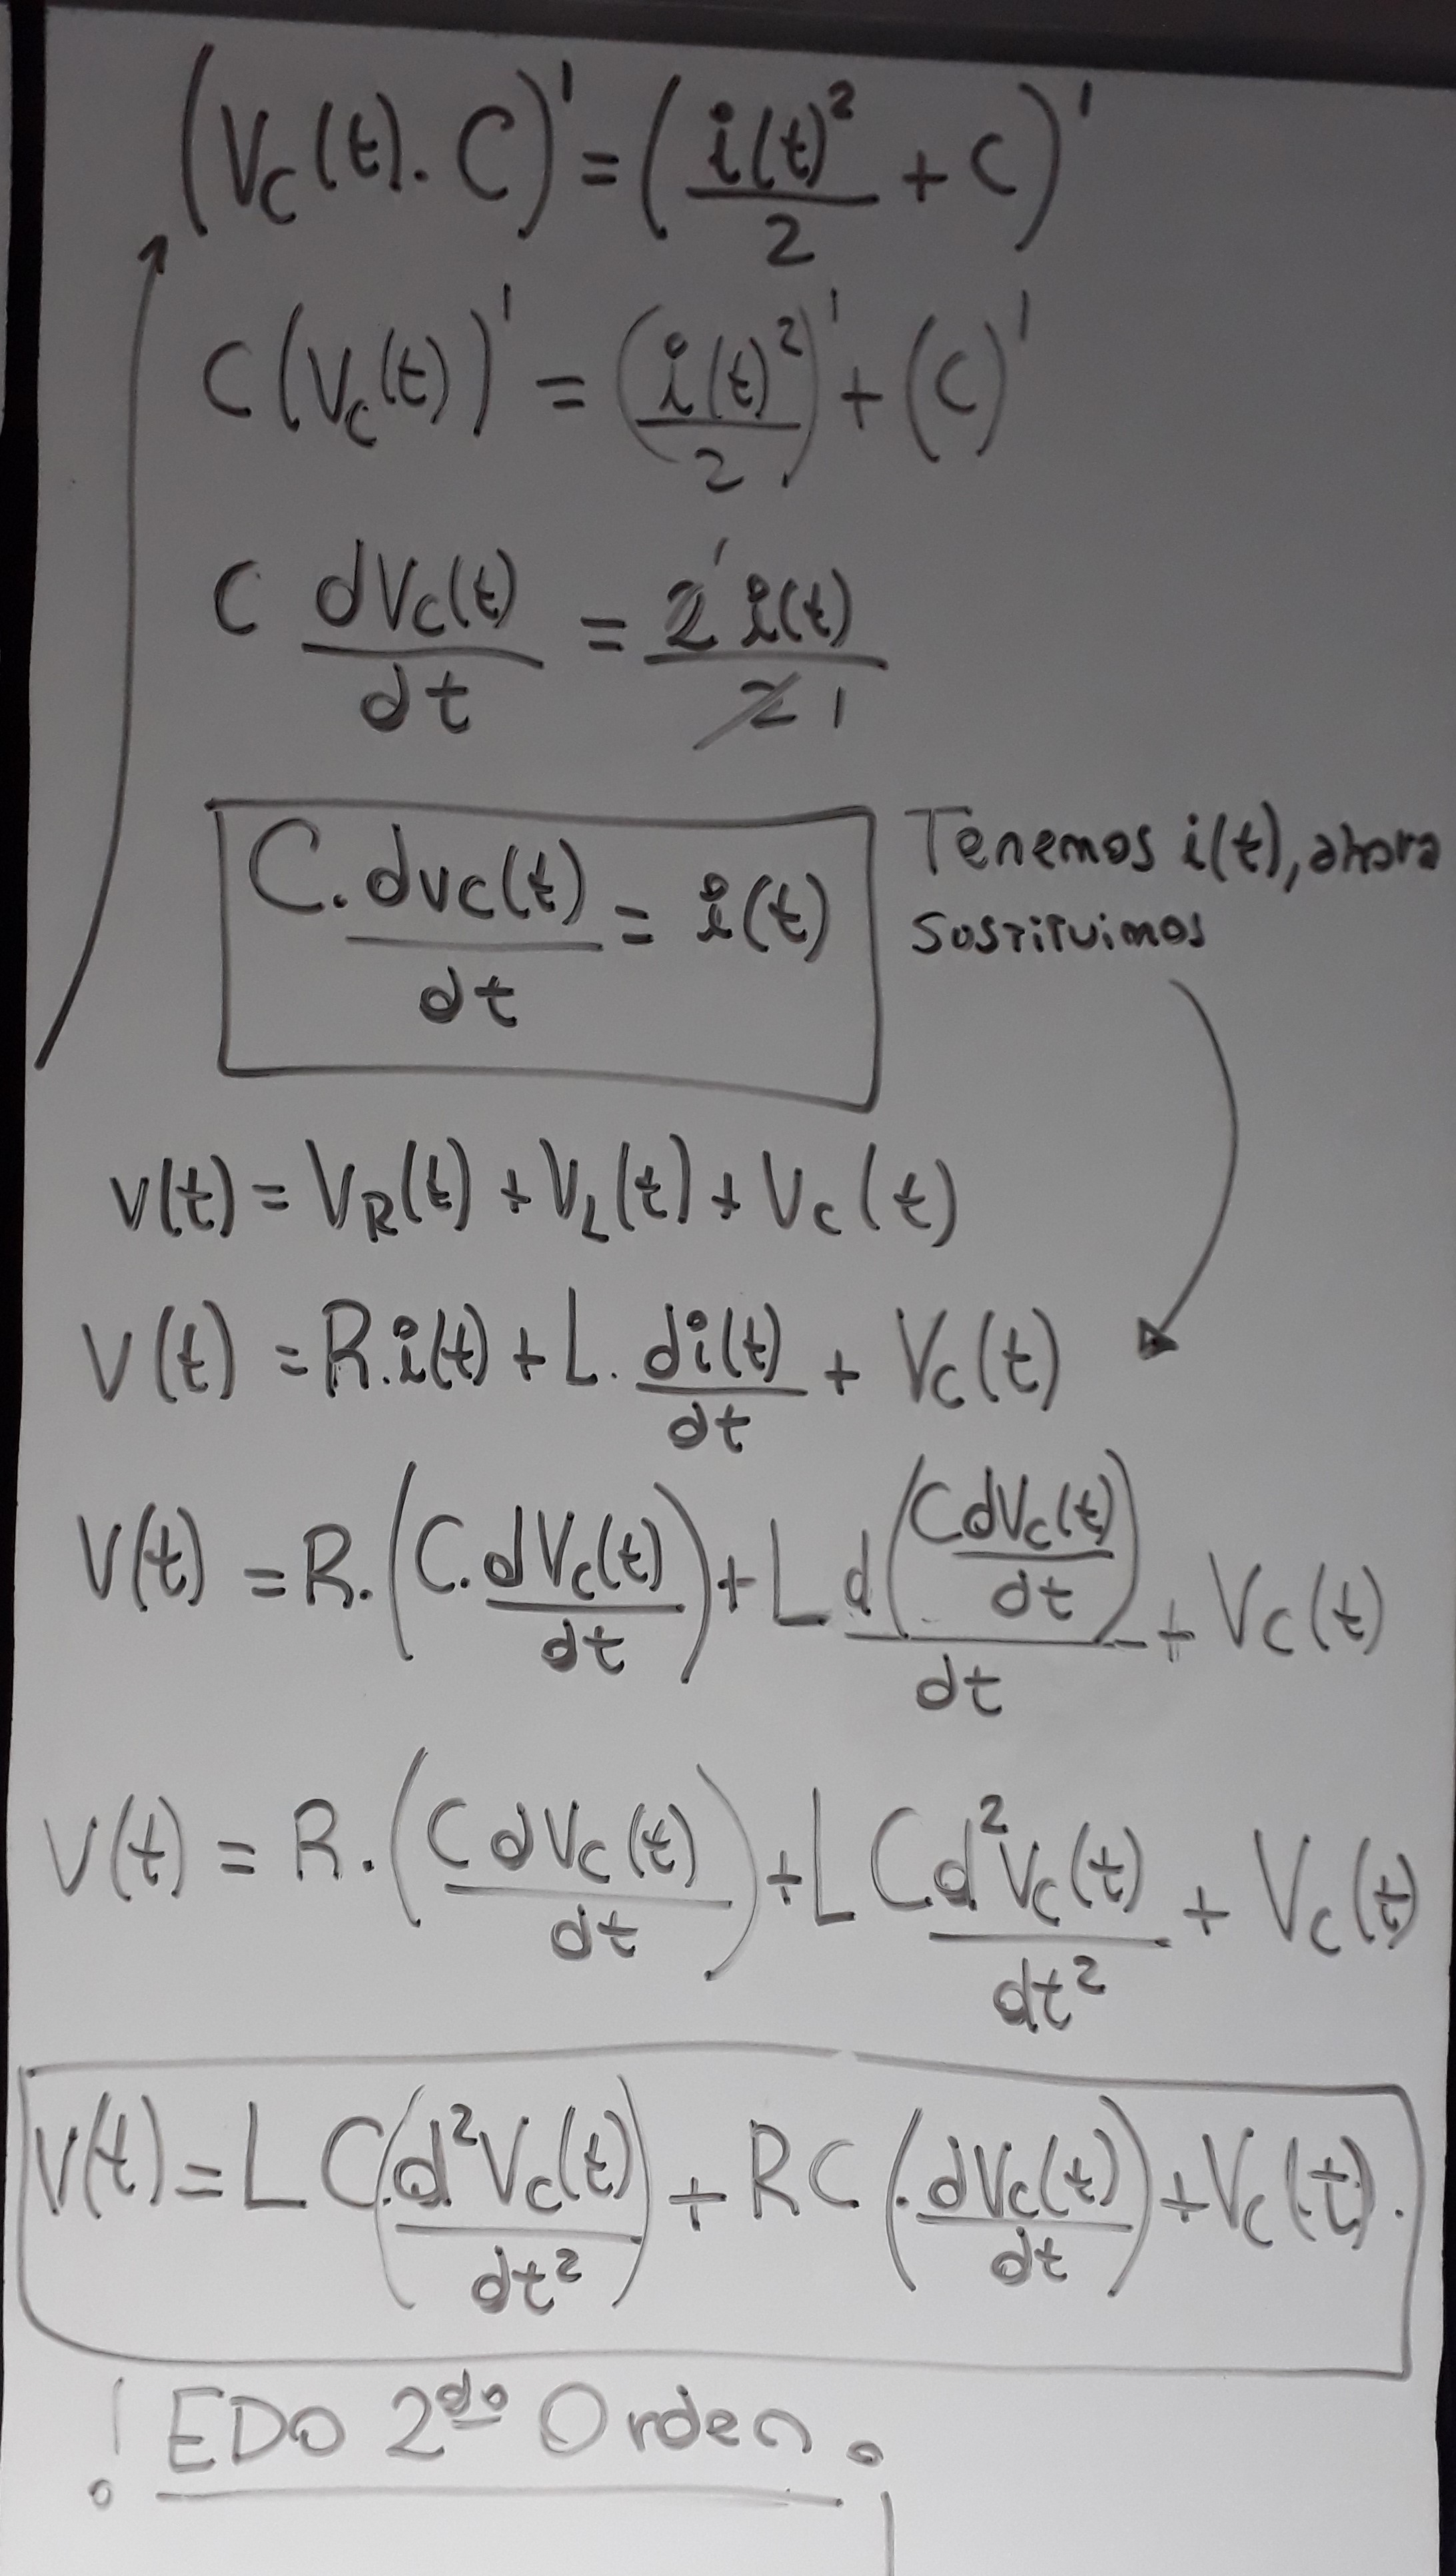 (Vc(t). C)' = (i(t)²/2 + C)'
C(Vc(t))' = (i(t)²/2)' + (C)'
C dVc(t)/dt = 2' i(t)/2 1
C. dvc(t)/dt = i(t)
Tenemos i(t), ahora
sustituimos
v(t) = VR(t) + VL(t) + Vc(t)
V(t) = R.i(t) + L. di(t)/dt + Vc(t)
V(t) = R.(C. dVc(t)/dt) + L d(C dVc(t)/dt)/dt + Vc(t)
V(t) = R.(C dVc(t)/dt) + L C d²Vc(t)/dt² + Vc(t)
V(t) = L C(.d²Vc(t)/dt²) + RC (.dVc(t)/dt) + Vc(t).
¡EDO 2do Orden!